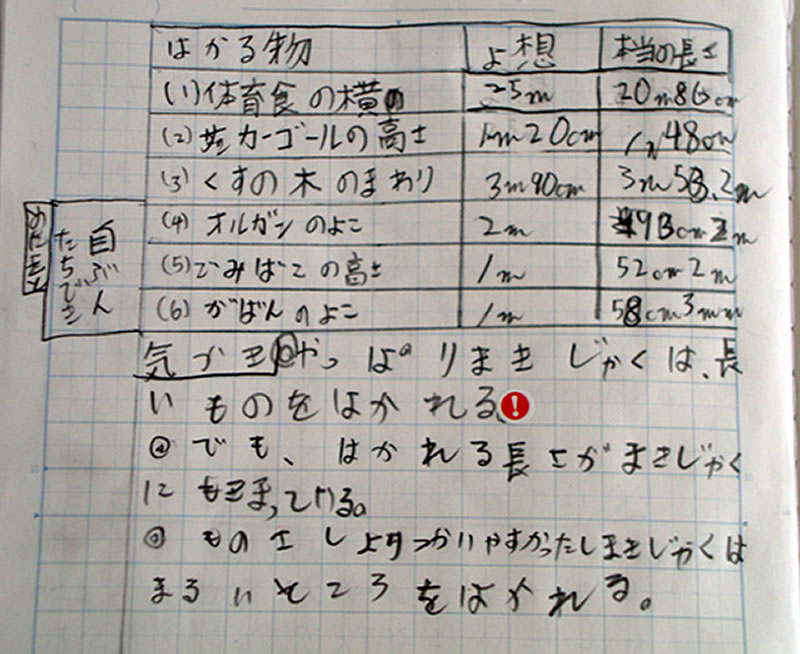 はかる物 よ想 本当の長さ
(1)体育食の横の 25m 20m86cm
(2)サッカーゴールの高さ 1m20cm 1m48cm
(3)くすの木のまわり 3m90cm 3m58.2m
(4)オルガンのよこ 2m 93cm2m
(5)ごみばこの高さ 1m 52cm2m
(6)がばんのよこ 1m 58cm3mm
自ぶん
たちでき
気づき①やっぱりまきじゃくは、長
いものをはかれる!
②でも、はかれる長さがまきじゃく
にもきまっている。
③ものさしよりつかいやすかったしまきじゃくは
まるいところをはかれる。